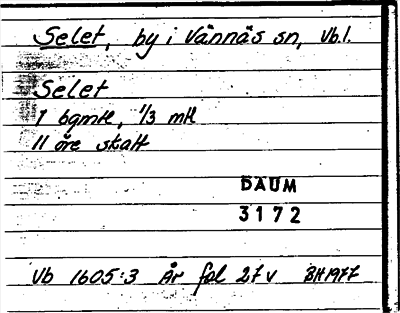 Selet, by i Vännäs sn, Vb.l.
Selet
1 bgmtl, 1/3 mtl
11 öre skatt
DAUM
3172
Vb 1605:3 År fol 27v BH1977